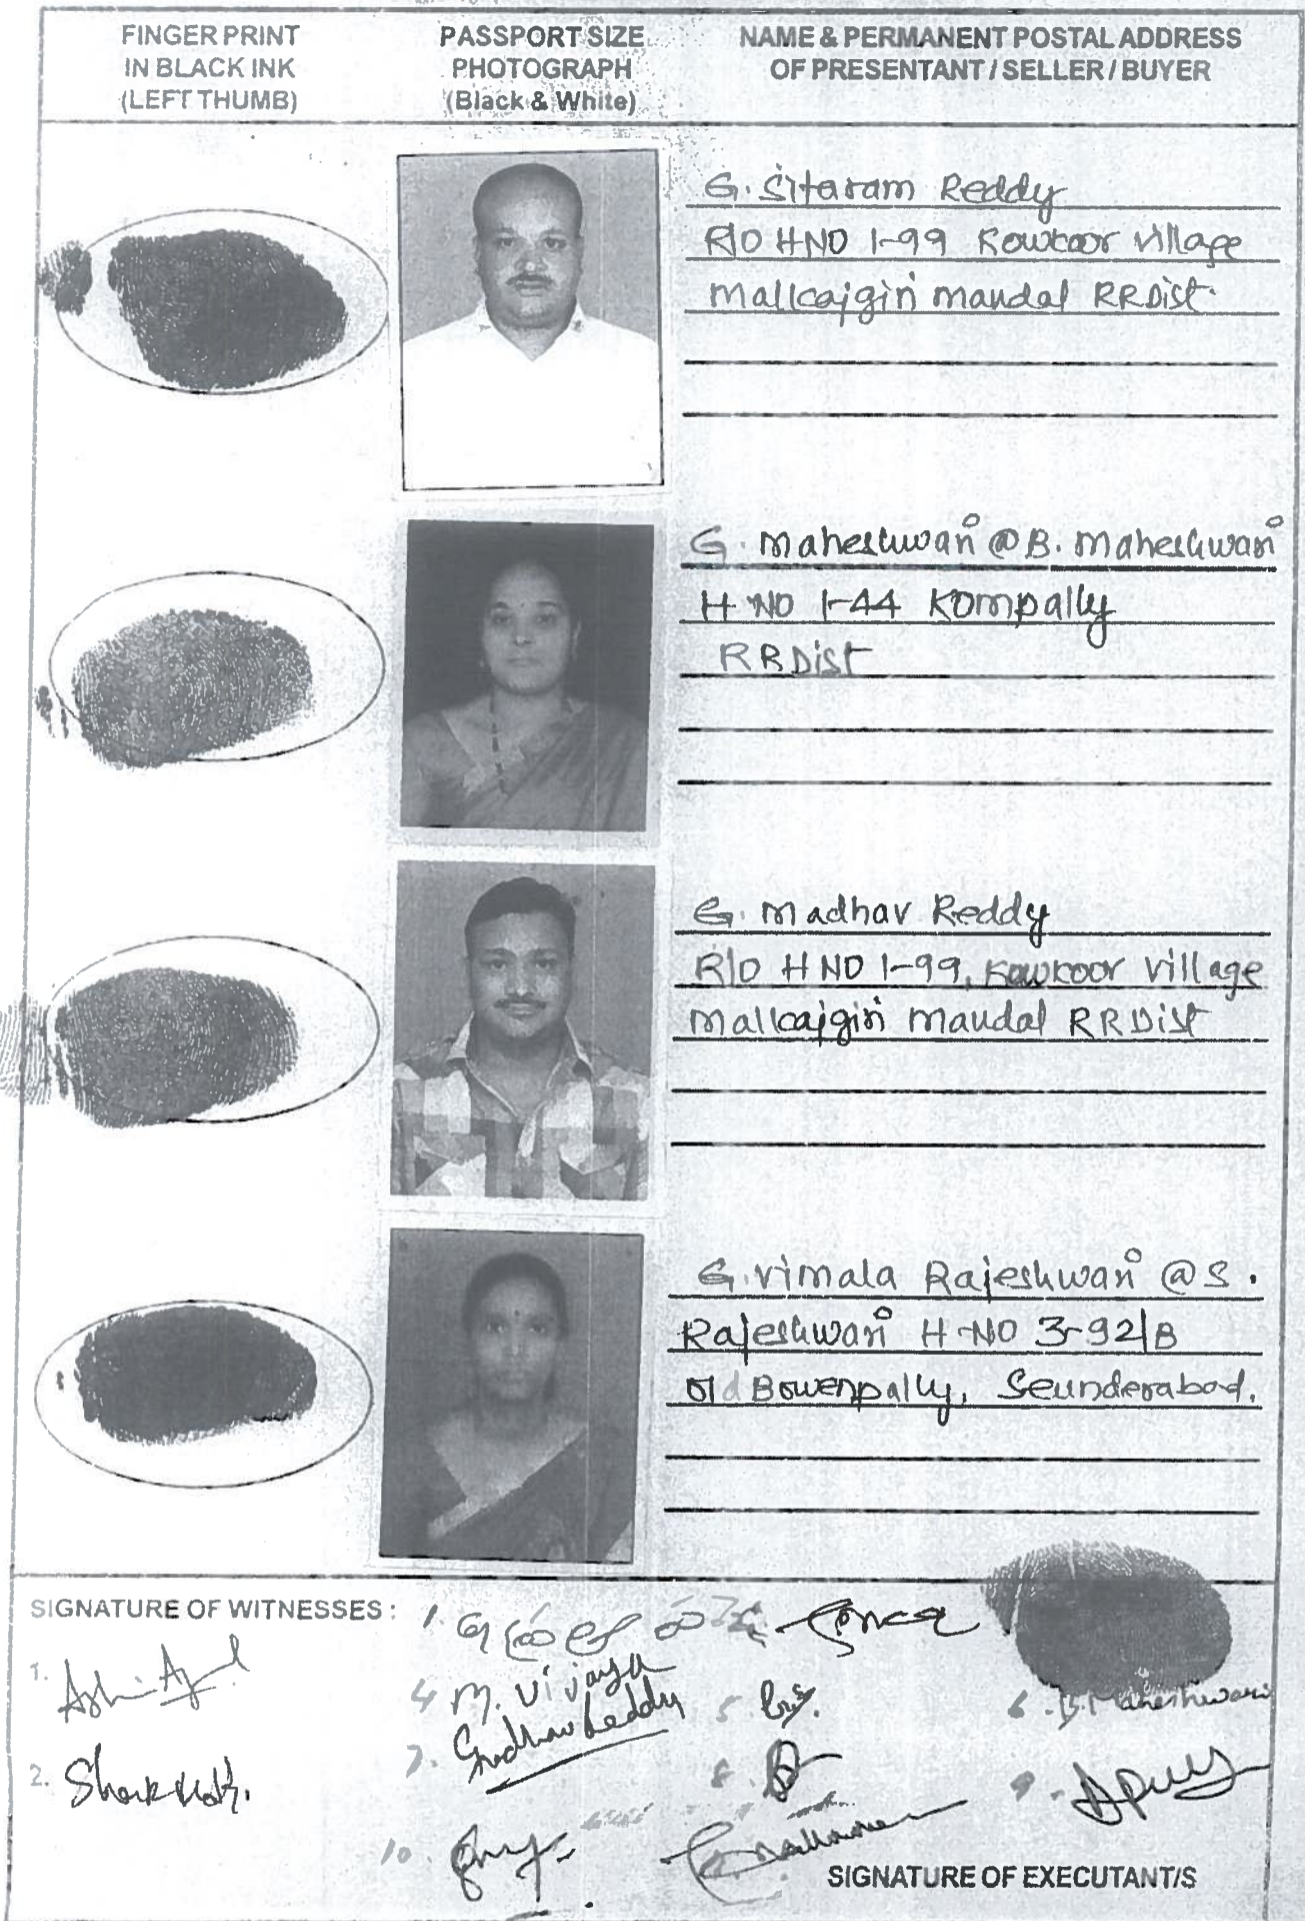 FINGER PRINT
IN BLACK INK
(LEFT THUMB)
PASSPORT SIZE
PHOTOGRAPH
(Black & White)
NAME & PERMANENT POSTAL ADDRESS
OF PRESENTANT / SELLER / BUYER
G. Sitaram Reddy
R/O H NO 1-99 Kowkoor village
Malkajgiri mandal RR Dist.
G. Maheshwari @ B. Maheshwari
H NO 1-44 Kompally
RR Dist
G. Madhav Reddy
R/O H NO 1-99, Kowkoor village
Malkajgiri Mandal RR Dist
G. Vimala Rajeshwari @ S.
Rajeshwari H-NO 3-92/B
Old Bowenpally, Seunderabad.
SIGNATURE OF WITNESSES :
1.
2.
1.
4 M. Vijaya
5
6. B. Maheshwari
7. Reddy
8.
9.
10.
SIGNATURE OF EXECUTANT/S